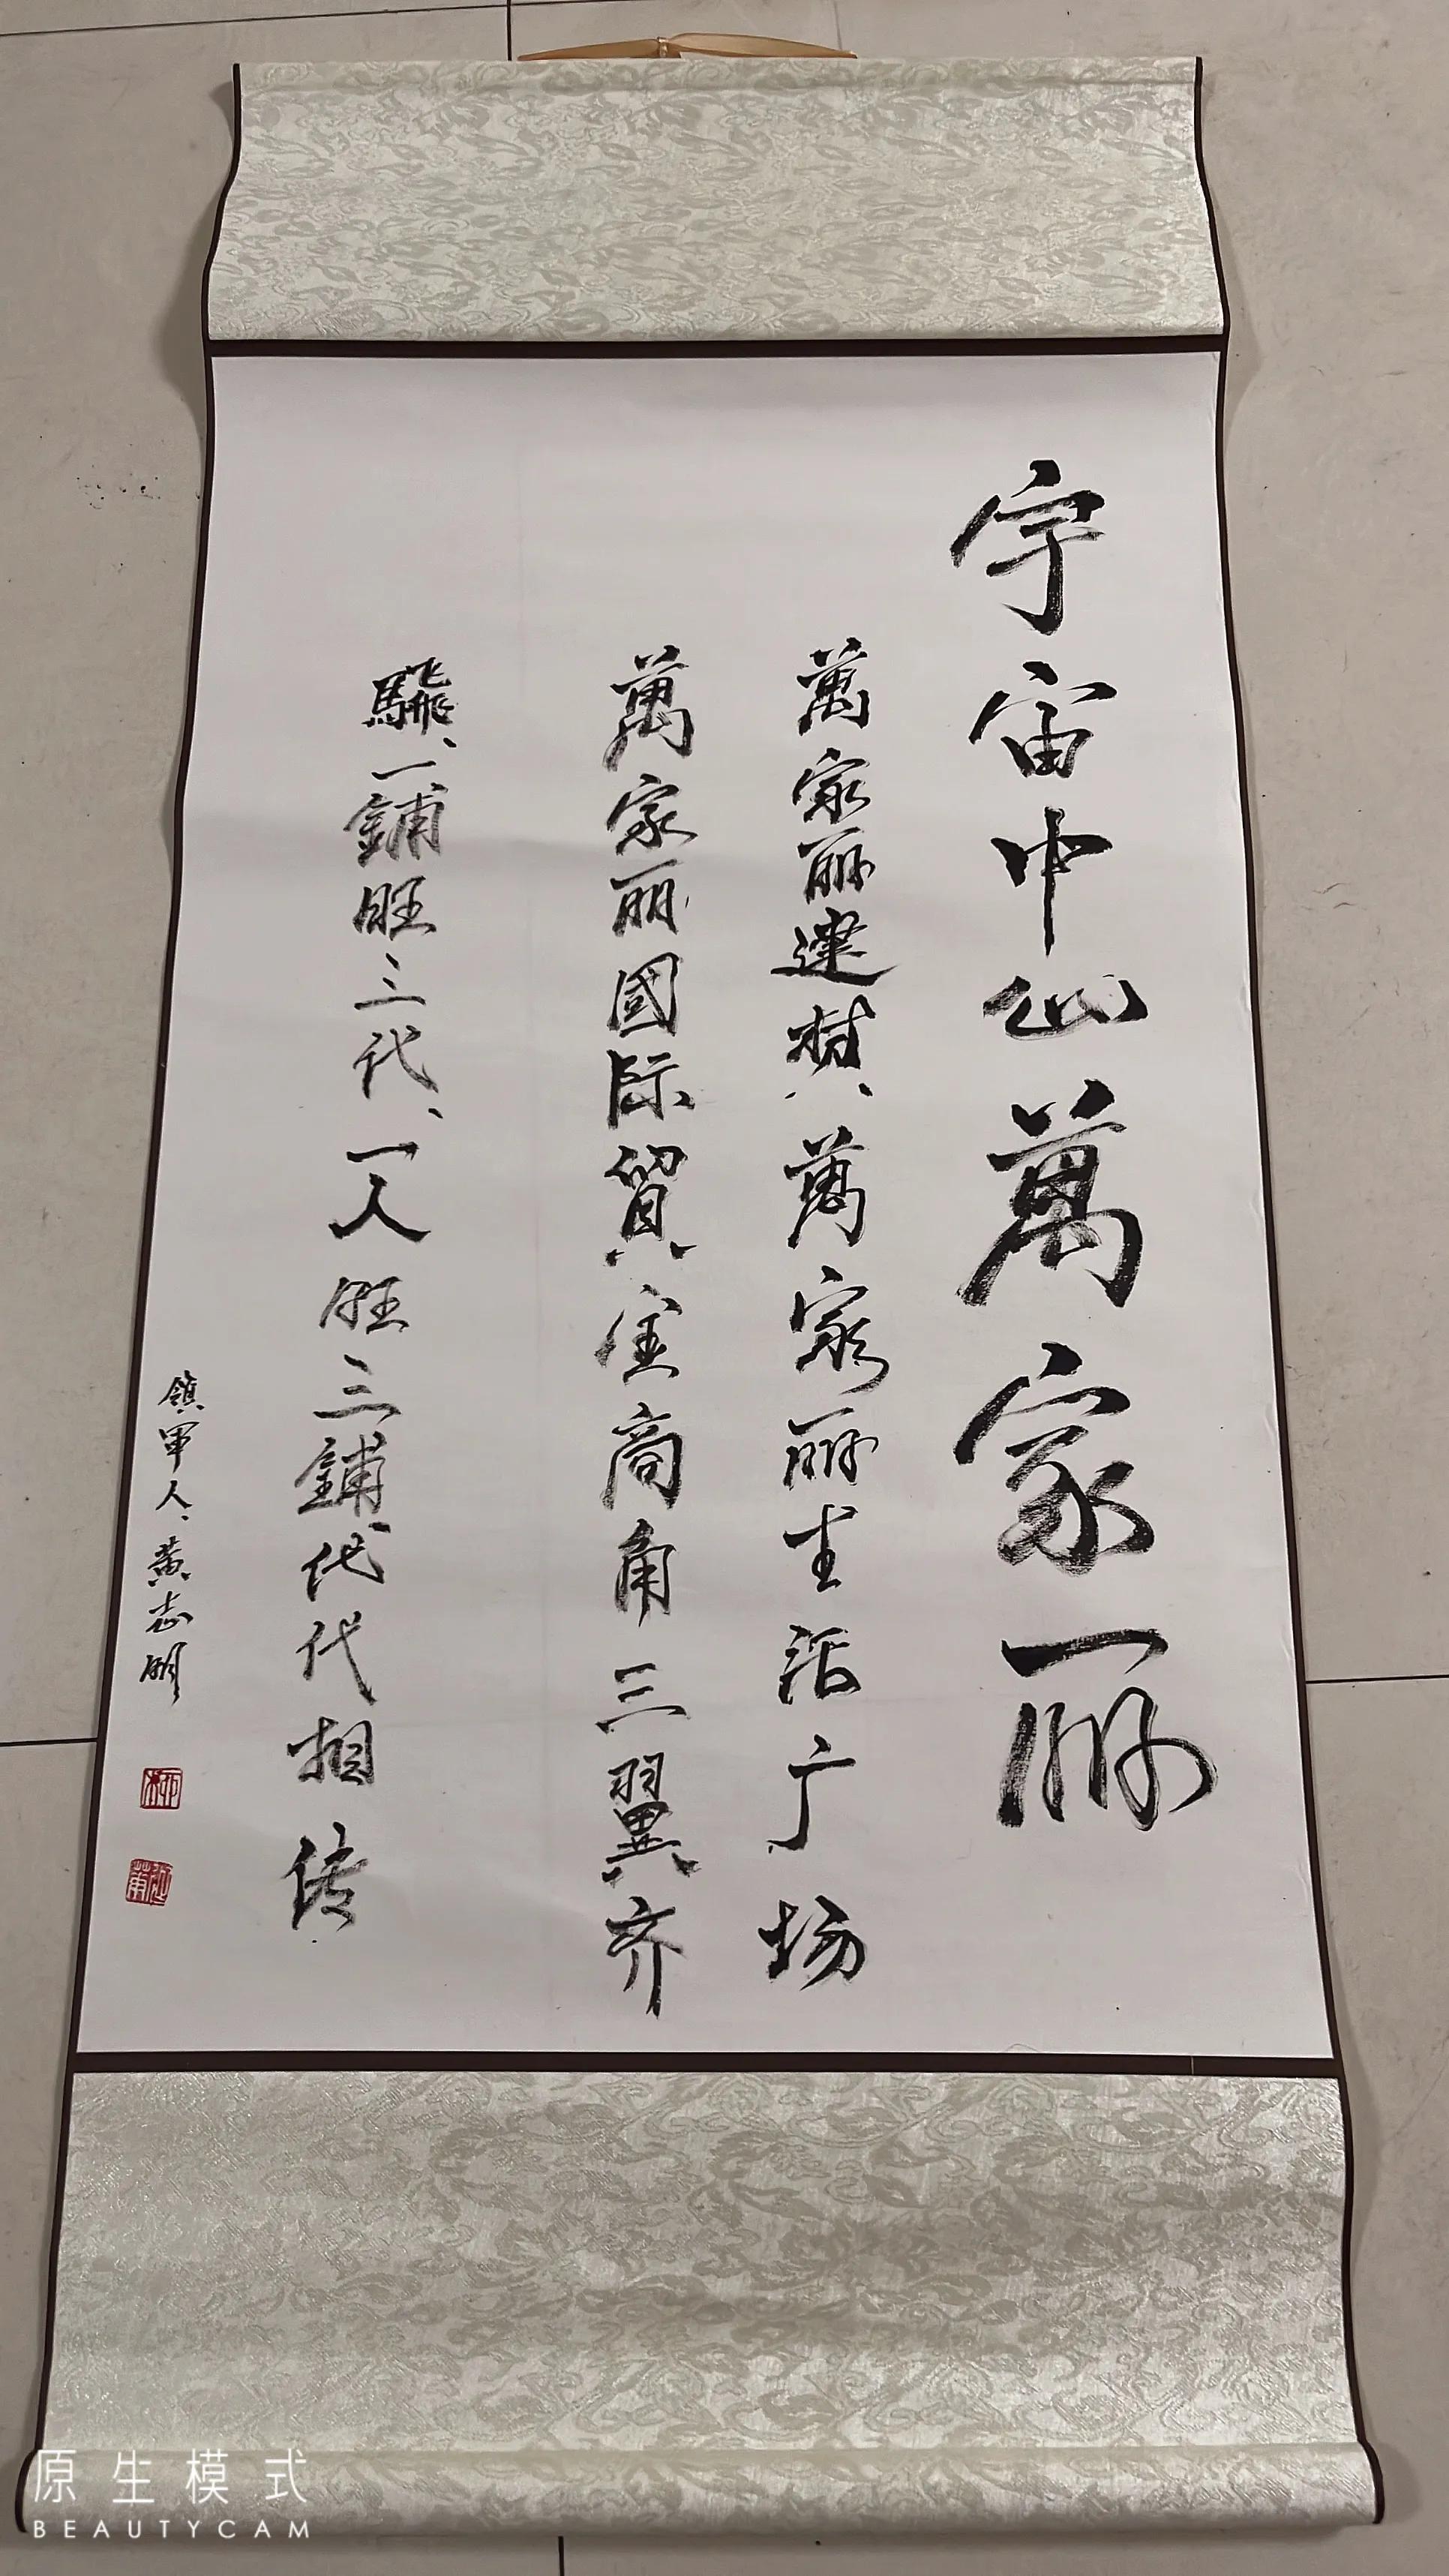 宇宙中心萬家丽
萬家丽建材、萬家丽生活广场
萬家丽國际貿金商角三翼齐
騛、一鋪旺三代、一人旺三鋪代代相传
領軍人、黄志明
原生模式
BEAUTYCAM